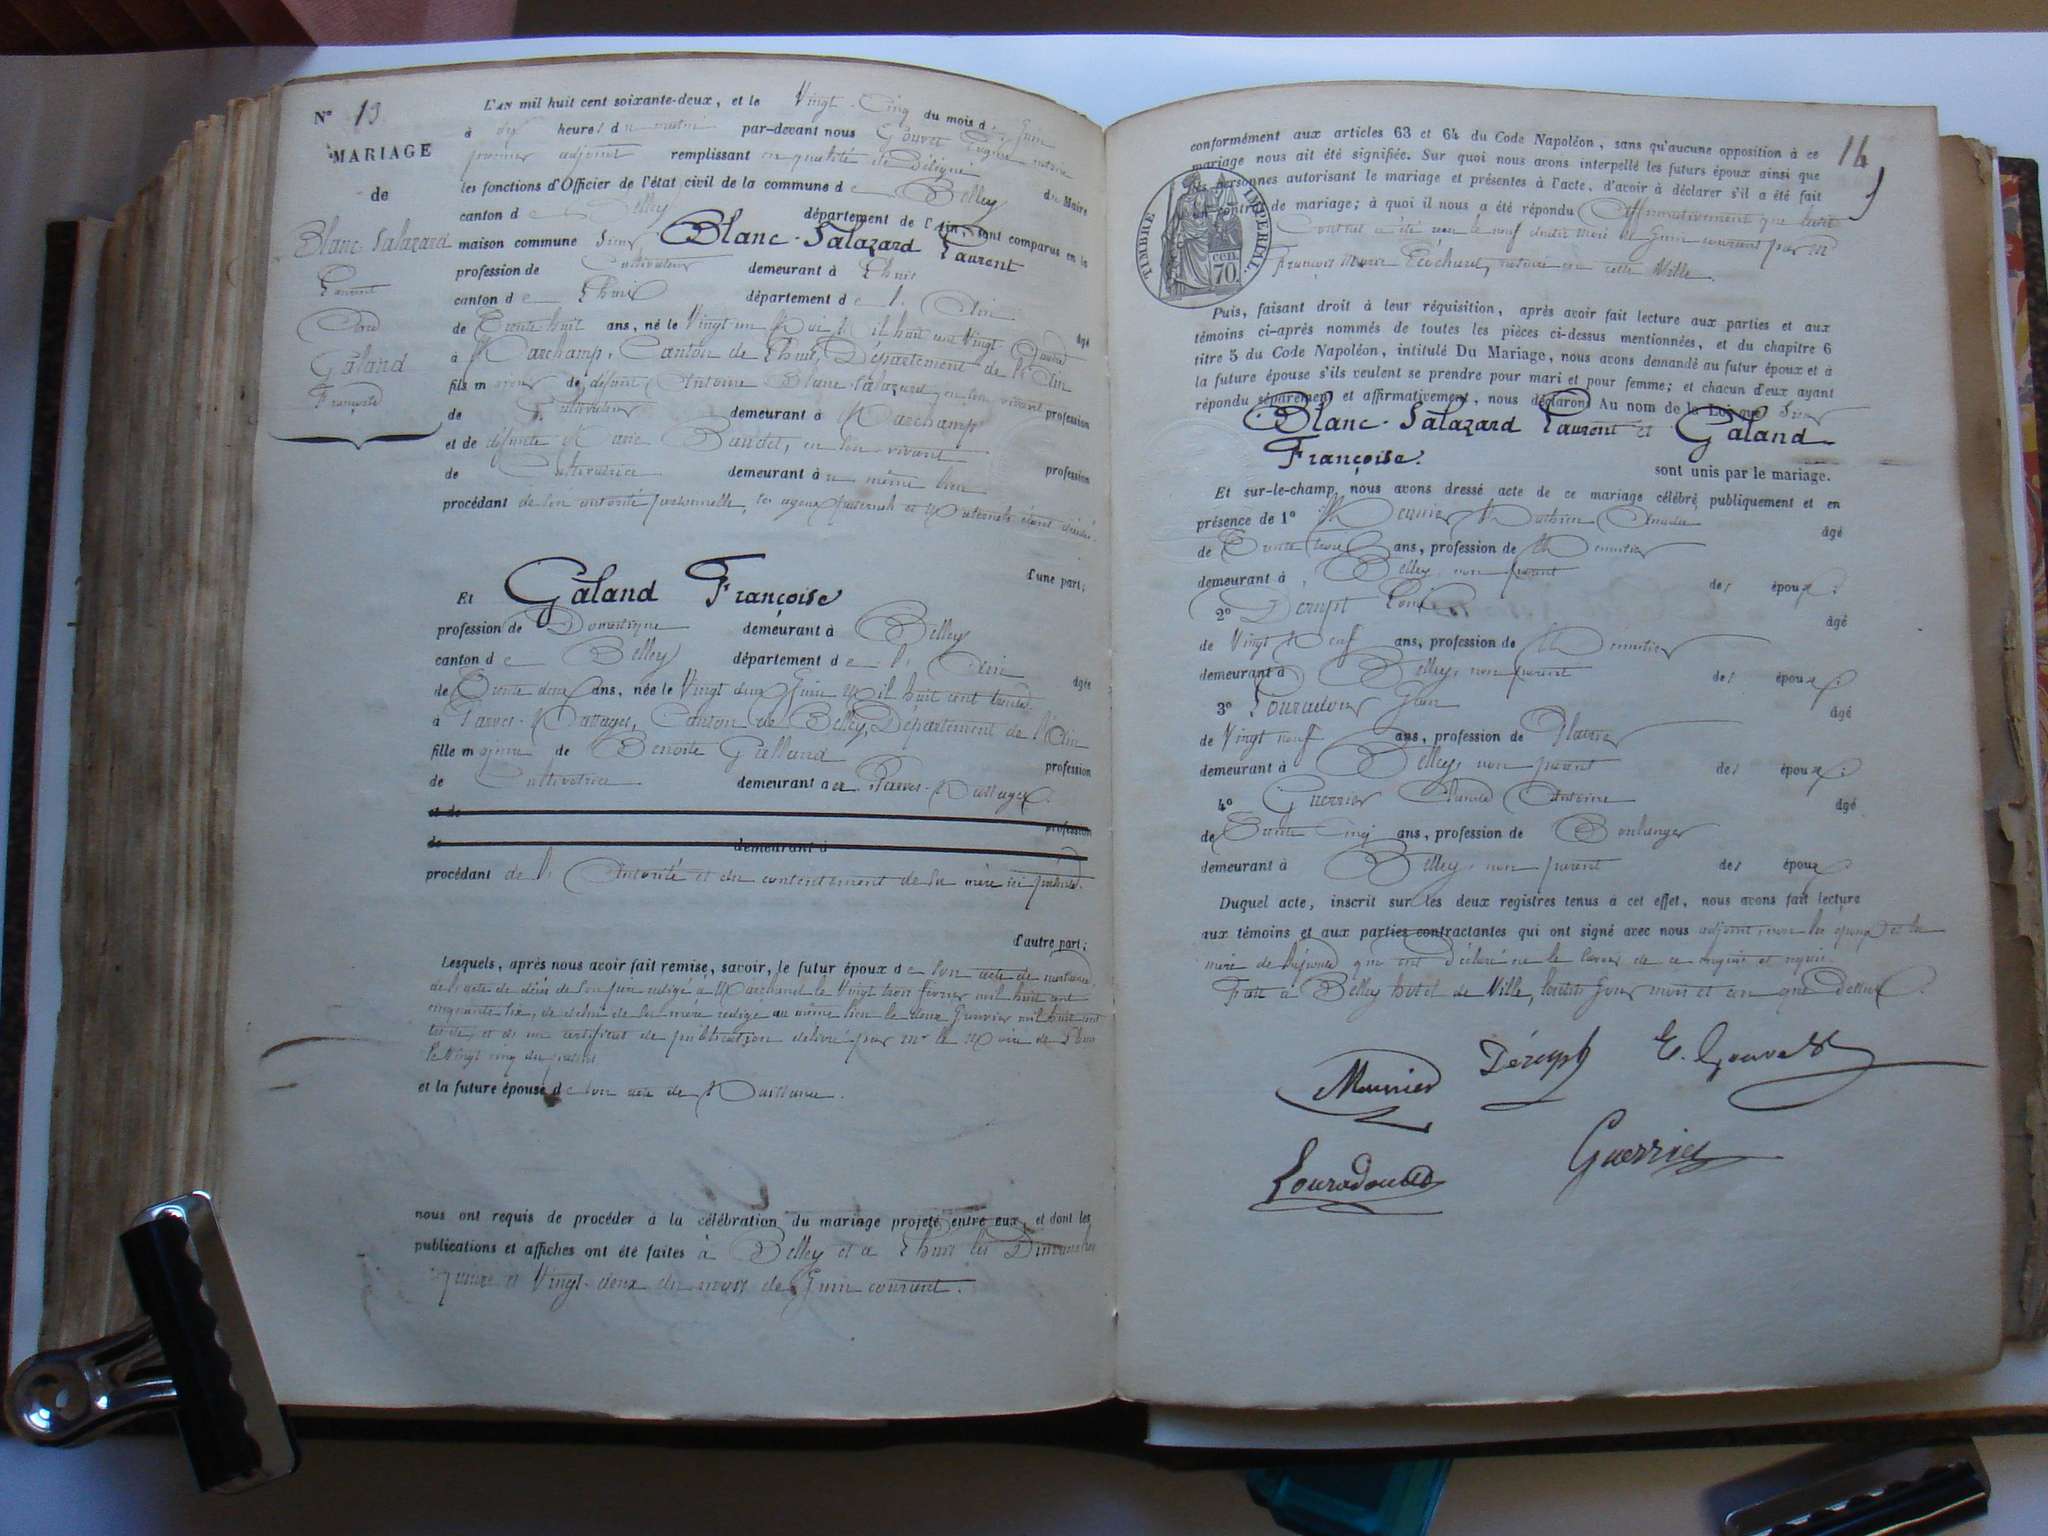 N° 13
MARIAGE
de
Blanc-Salazard
Laurent
Galand
Françoise
L'AN mil huit cent soixante-deux, et le Vingt-Cinq du mois de Juin
à dix heures du matin par-devant nous Gouvet Eugène notaire
premier adjoint remplissant en qualité de Délégué du Maire
les fonctions d'Officier de l'état civil de la commune de Belley
canton de Belley département de l'Ain, sont comparus en la
maison commune Sieur Blanc-Salazard Laurent
profession de Cultivateur demeurant à Lhuis
canton de Lhuis département de l'Ain âgé
de Trente huit ans, né le Vingt-un Mai Mil huit cent Vingt-
à Marchamp, Canton de Lhuis, Département de l'Ain
fils majeur de défunt Antoine Blanc-Salazard, en son vivant profession
de Cultivateur demeurant à Marchamp
et de défunte Marie Baudet, en son vivant profession
de Cultivatrice demeurant à même lieu
procédant de son autorité personnelle, les ayeux paternels et Maternels étant décédés.
d'une part;
Et Galand Françoise
profession de Domestique demeurant à Belley
canton de Belley département de l'Ain âgée
de Trente deux ans, née le Vingt deux Juin Mil huit cent trente
à Parves-Nattages, Canton de Belley, Département de l'Ain
fille majeure de Benoite Galland profession
de Cultivatrice demeurant à Parves-Nattages.
et de profession
de demeurant à
procédant de l'Autorité et du consentement de sa mère ici présente.
d'autre part;
Lesquels, après nous avoir fait remise, savoir, le futur époux de son acte de naissance,
de l'acte de décès de son père rédigé à Marchamp le Vingt trois février mil huit cent
cinquante six, de celui de sa mère rédigé au même lieu le deux Janvier mil huit cent
et de un certificat de publication délivré par Mr le Maire de Lhuis
le Vingt cinq du présent
et la future épouse de son acte de Naissance.
nous ont requis de procéder à la célébration du mariage projeté entre eux, et dont les
publications et affiches ont été faites à Belley et à Lhuis les Dimanches
quinze et Vingt-deux du mois de Juin courant.
14
conformément aux articles 63 et 64 du Code Napoléon, sans qu'aucune opposition à ce
mariage nous ait été signifiée. Sur quoi nous avons interpellé les futurs époux ainsi que
les personnes autorisant le mariage et présentes à l'acte, d'avoir à déclarer s'il a été fait
un contrat de mariage; à quoi il nous a été répondu Affirmativement que ledit
Contrat a été reçu le neuf dudit mois de Juin courant par Me
François Marie Réchard, notaire en cette Ville.
TIMBRE IMPÉRIAL.
CEN.
70.
Puis, faisant droit à leur réquisition, après avoir fait lecture aux parties et aux
témoins ci-après nommés de toutes les pièces ci-dessus mentionnées, et du chapitre 6
titre 5 du Code Napoléon, intitulé Du Mariage, nous avons demandé au futur époux et à
la future épouse s'ils veulent se prendre pour mari et pour femme; et chacun d'eux ayant
répondu séparément et affirmativement, nous déclarons Au nom de la Loi que Sieur
Blanc-Salazard Laurent et Galand
Françoise. sont unis par le mariage.
Et sur-le-champ, nous avons dressé acte de ce mariage célébré publiquement et en
présence de 1° Meunier Mathieu âgé
de Trente trois ans, profession de Menuisier
demeurant à Belley, non parent des époux.
2° Louis âgé
de Vingt Neuf ans, profession de Menuisier
demeurant à Belley, non parent des époux.
3° Louradour Jean âgé
de Vingt neuf ans, profession de Platrier
demeurant à Belley, non parent des époux.
4° Guerrier Claude Antoine âgé
de Trente Cinq ans, profession de Boulanger
demeurant à Belley, non parent des époux
Duquel acte, inscrit sur les deux registres tenus à cet effet, nous avons fait lecture
aux témoins et aux parties contractantes qui ont signé avec nous adjoint, non les époux et la
mère de l'épouse qui ont déclaré ne le savoir de ce enquis et requis.
Fait à Belley hôtel de Ville, lesdits jour mois et an que dessus.
Meunier
E. Gouvet
Louradour
Guerrier